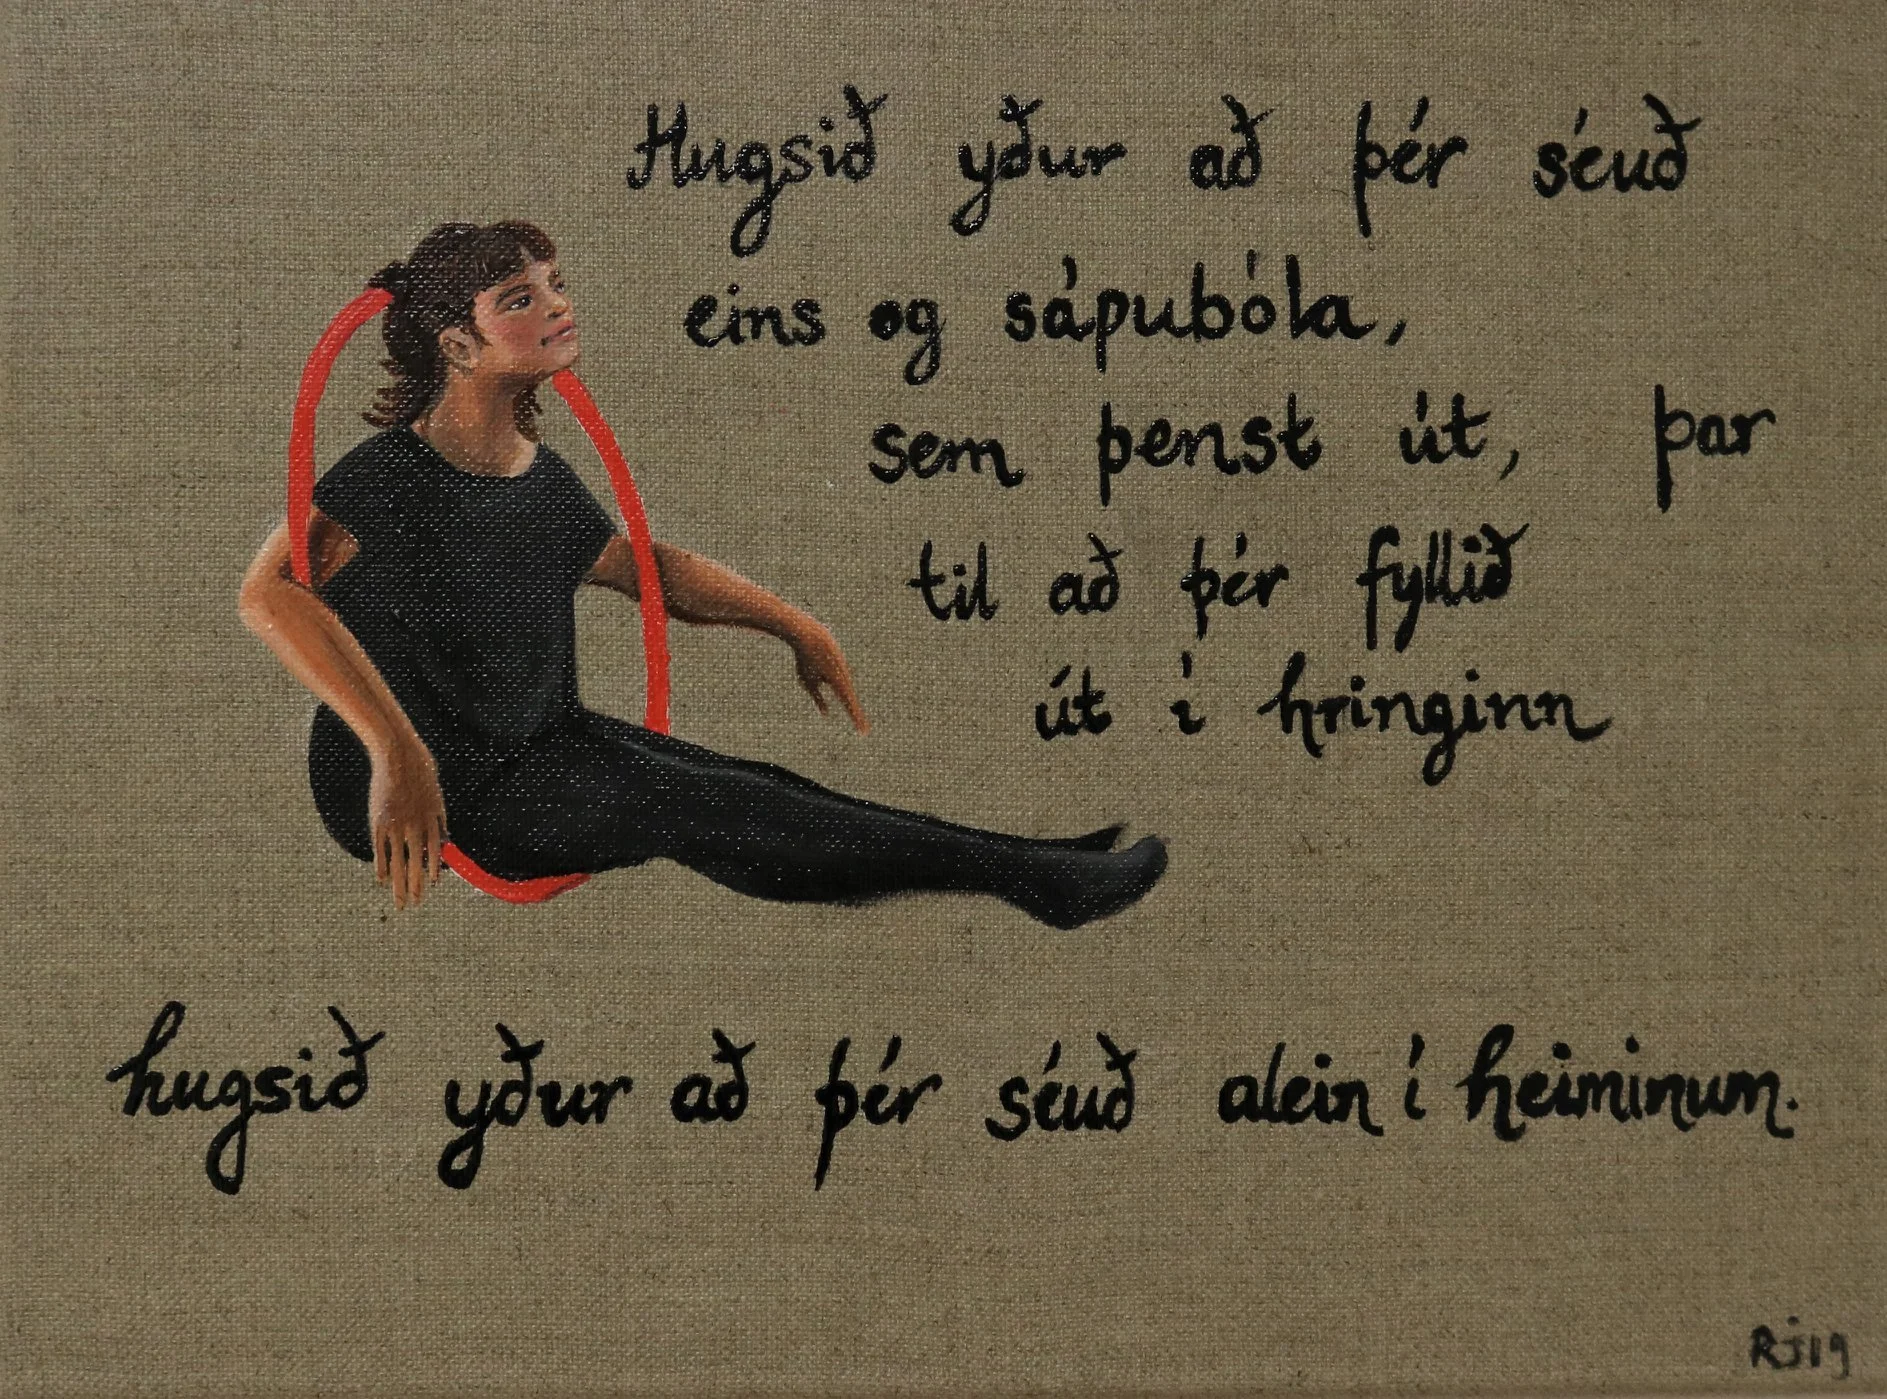 Hugsið yður að þér séuð
eins og sápubóla,
sem þenst út, þar
til að þér fyllið
út í hringinn
hugsið yður að þér séuð alein í heiminum.
RJ19